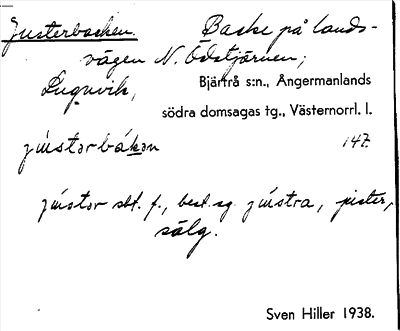 Justerbacken. Backe på lands-
vägen N. Ödstjärnen;
Lugnvik, Bjärtrå s:n., Ångermanlands
södra domsagas tg., Västernorrl. l.
147.
sbt. f., best. sg. jister,
sälg.
Sven Hiller 1938.